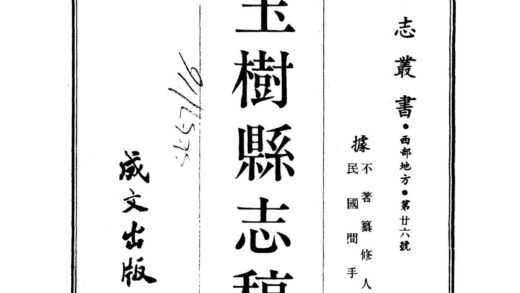 志叢書●西部地方●第廿六號
據
不著纂修人
民國間手
玉樹縣志稿
成文出版